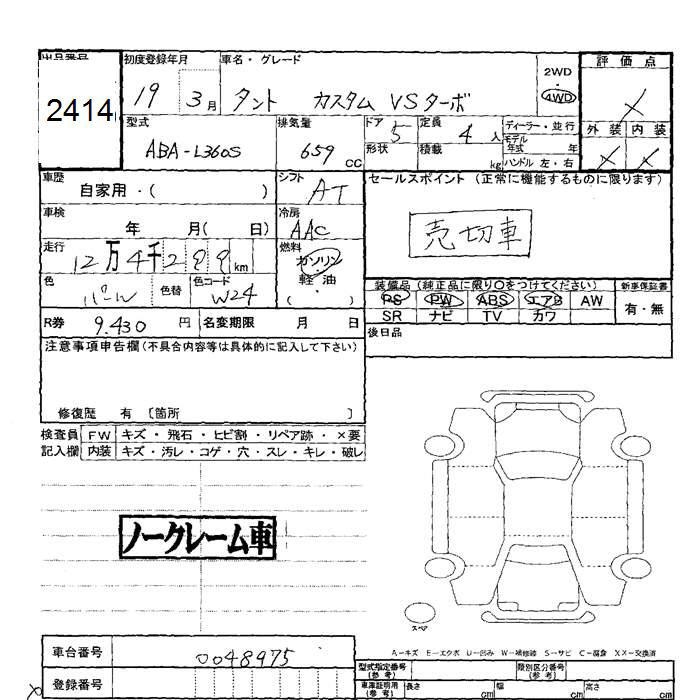 出品番号
2414
初度登録年月
19 3月
車名・グレード
タント カスタム VSターボ
2WD
・
4WD
評価点
X
外装 内装
X X
型式
ABA-L360S
排気量
659 CC
ドア 5
形状
定員 4 人
積載 kg
ディーラー・並行
モデル
年式 年
ハンドル 左・右
車歴
自家用・( )
シフト
AT
セールスポイント (正常に機能するものに限ります)
売切車
車検
年 月( 日)
冷房
AAC
走行
12万4千299km
燃料
ガソリン
軽・油
・
( )
色
パール
色替
色コード
W24
装備品(純正品に限り○をつけてください)
新車保証書
PS PW ABS エアB AW
SR ナビ TV カワ
有・無
R券 9.430 円
名変期限 月 日
後日品
注意事項申告欄(不具合内容等は具体的に記入して下さい)
修復歴 有 〔箇所 〕
検査員
記入欄
FW キズ・飛石・ヒビ割・リペア跡・×要
内装 キズ・汚レ・コゲ・穴・スレ・キレ・破レ
ノークレーム車
スペア
A-キズ E-エクボ U-凹み W-補修跡 S-サビ C-腐食 XX-交換済
車台番号
0048975
登録番号
型式指定番号
(参考)
類別区分番号
(参考)
車庫証明用
(参考)
長さ cm
幅 cm
高さ cm